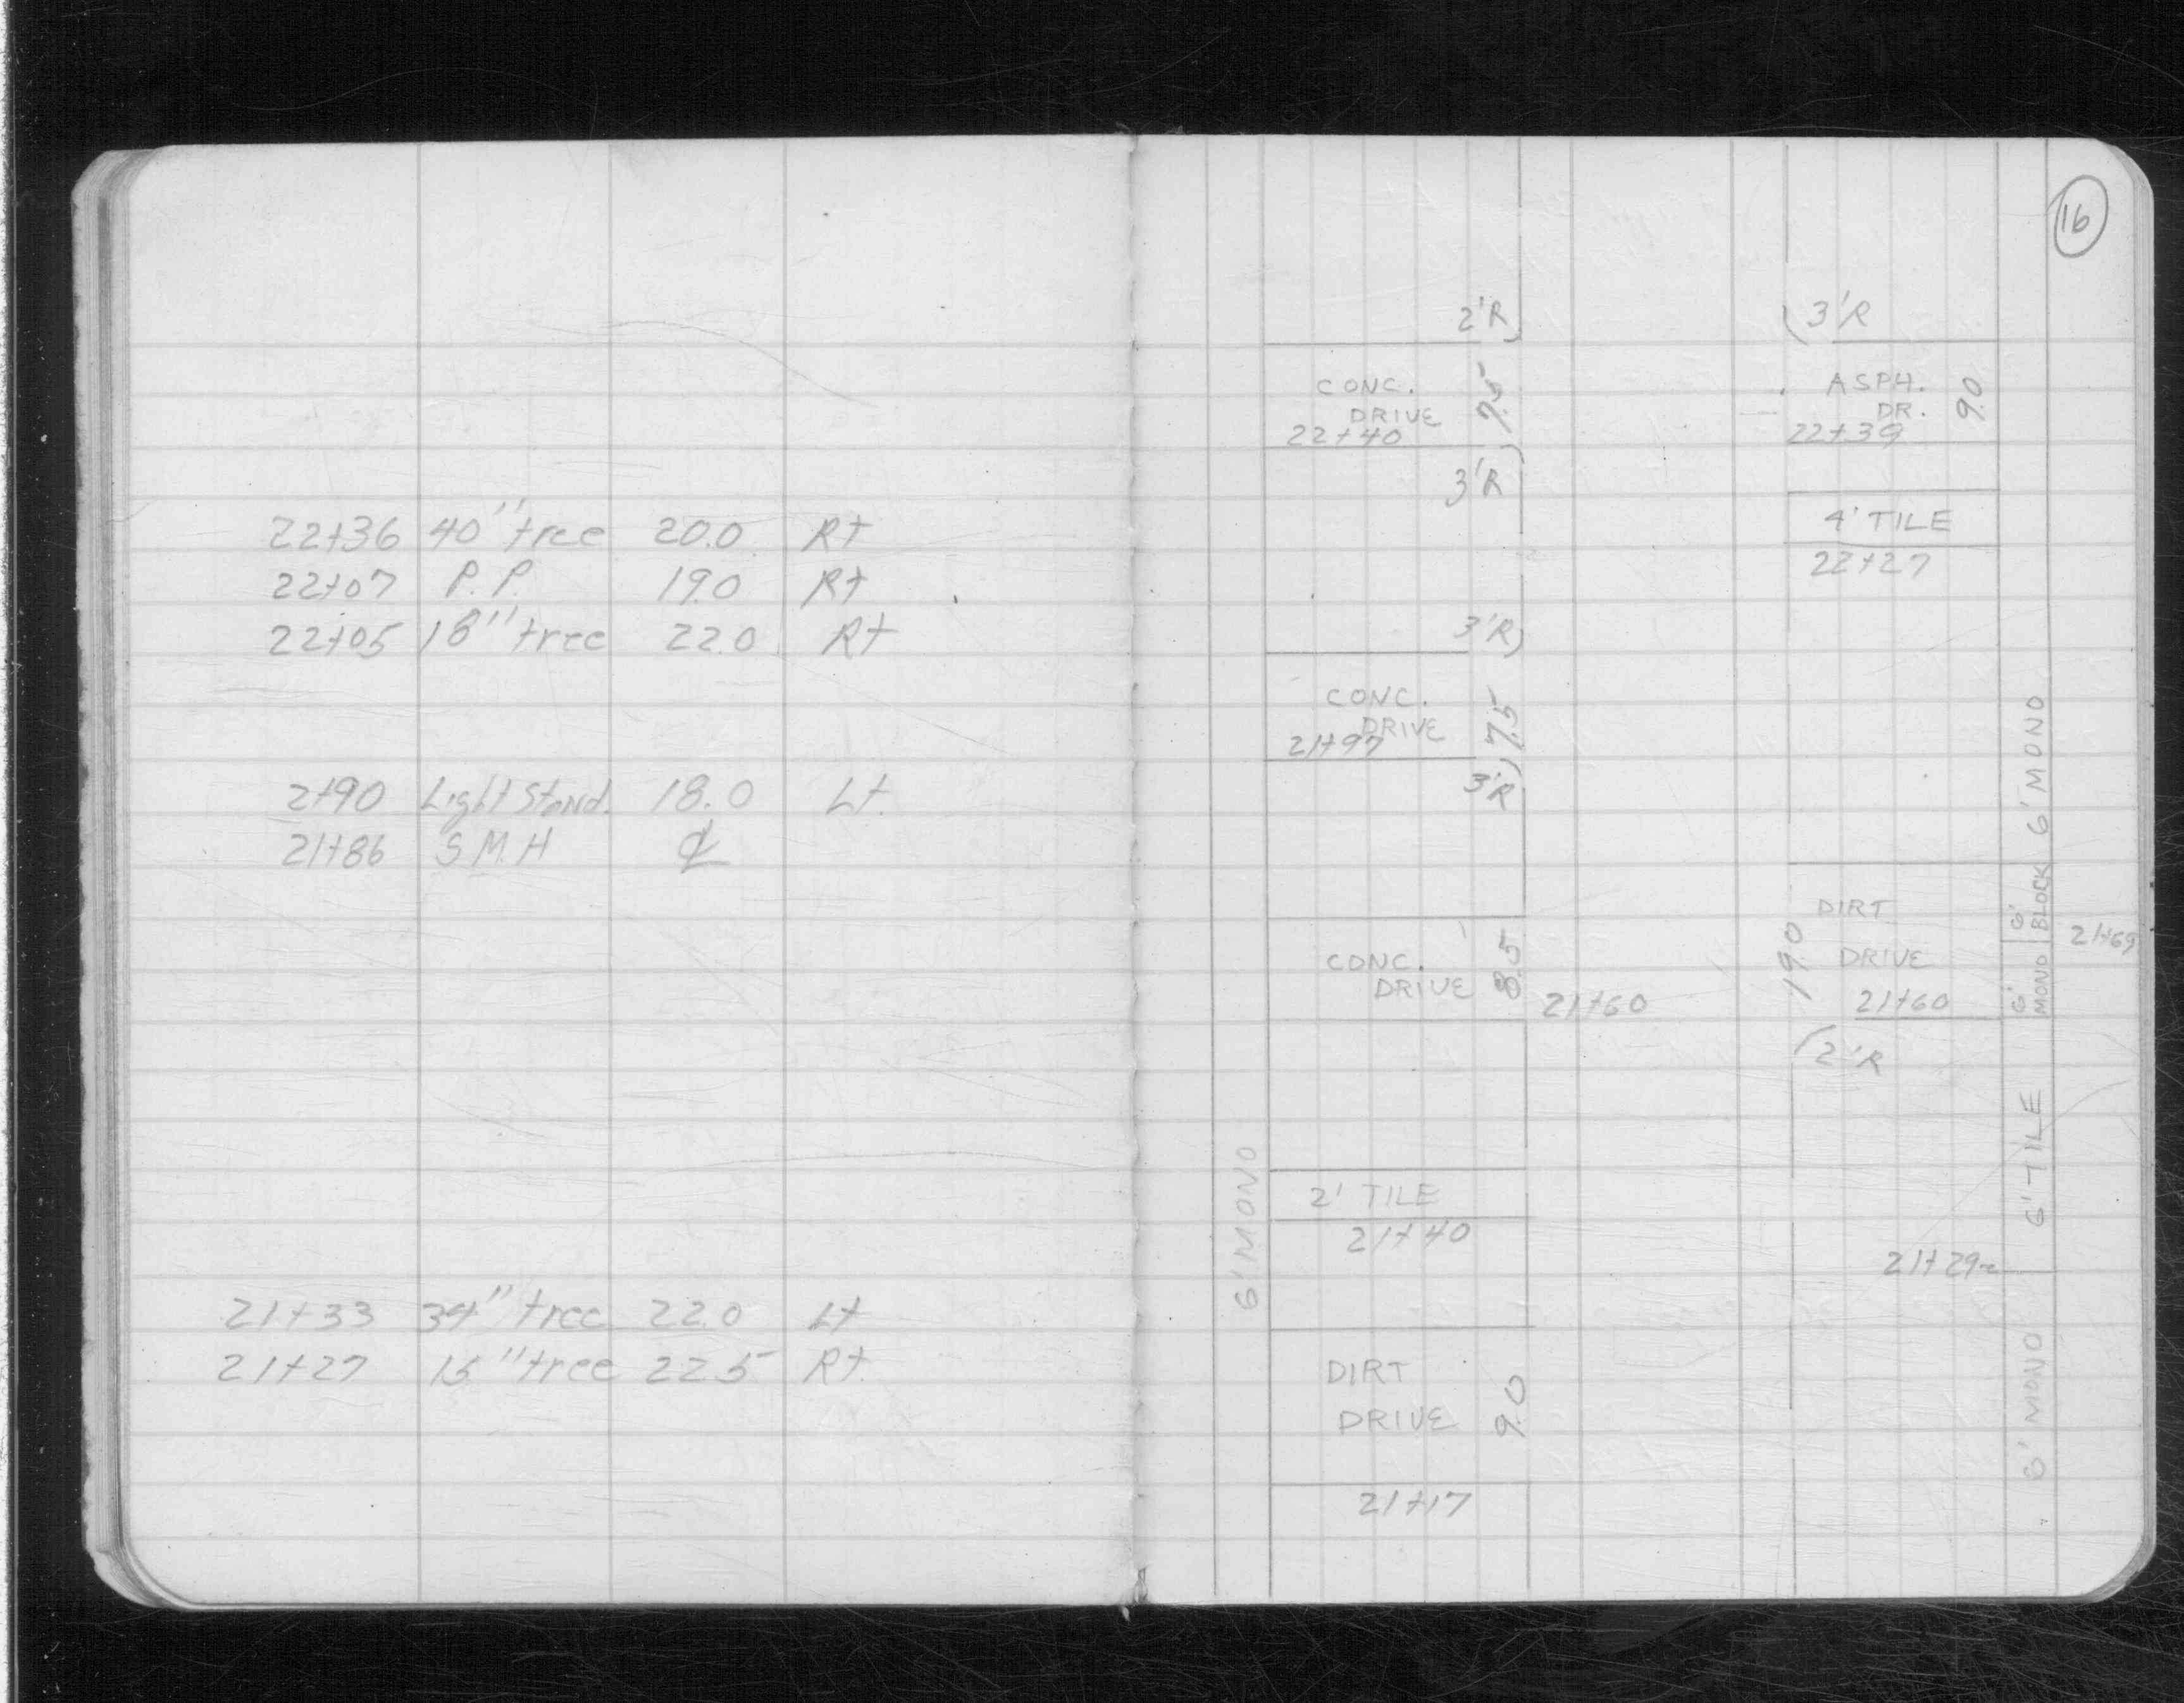 22+36 40" tree 20.0 Rt
22+07 P.P. 19.0 Rt
22+05 18" tree 22.0 Rt
2+90 Light Stand. 18.0 Lt.
21+86 S.M.H ℄
21+33 34" tree 22.0 Lt
21+27 15" tree 22.5 Rt.
16
2'R
3'R
CONC.
DRIVE
7.5
22+40
3'R
ASPH.
DR.
9.0
22+39
4' TILE
22+27
3'R
CONC.
DRIVE
7.5
21+97
3'R
6' MONO
CONC.
DRIVE
8.5
21+60
DIRT
DRIVE
19.0
21+60
2'R
6' BLOCK
6' MONO
21+69
6' TILE
2' TILE
21+40
6' MONO
21+29
6' MONO
DIRT
DRIVE
9.0
21+17